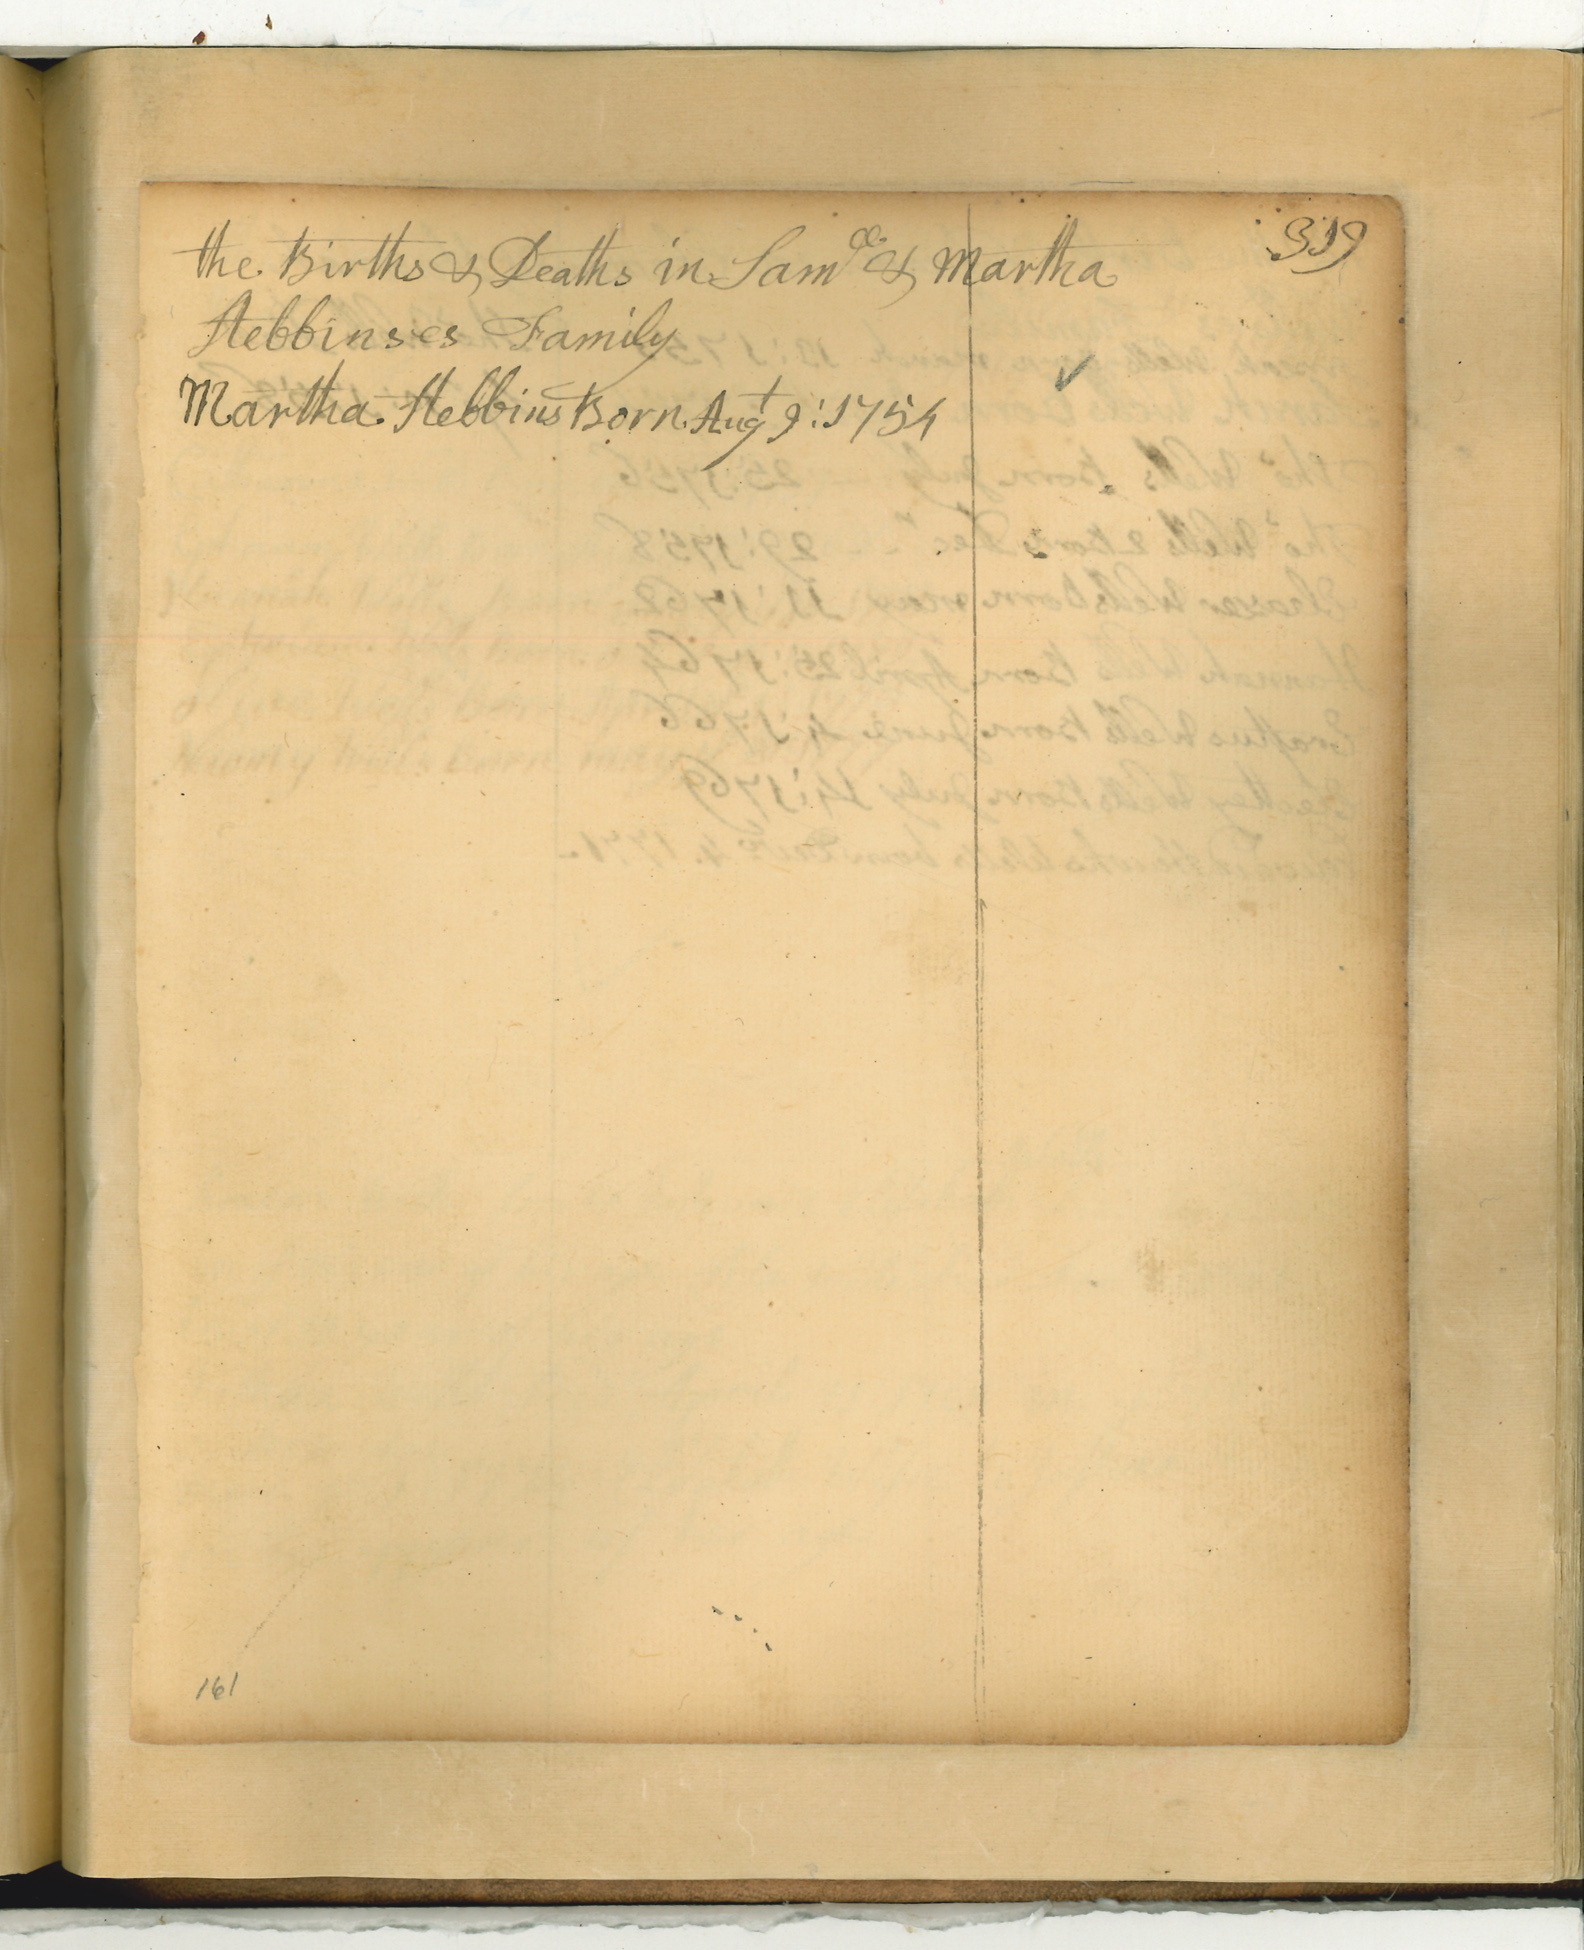 319
the Births & Deaths in Sam^ll & Martha
Stebbinses Family
Martha Stebbins Born Aug^t 9: 1754
✓
161